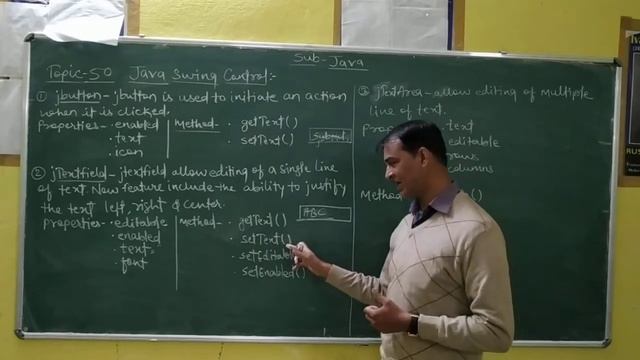 Sub- Java
Topic-50 Java Swing Control:-
① jbutton- jbutton is used to initiate an action
when it is clicked.
Properties- • enabled
• text
• icon
Method- • getText()
• setText()
Submit
② jTextfield- jtextfield allow editing of a single line
of text. New feature include the ability to justify
the text left, right & center.
ABC
Properties- • editable
• enabled
• text,
• font
Method- • getText()
• setText()
• setEditable
• setEnabled()
③ jTextArea- allow editing of multiple
line of text.
text
editable
rows
columns
Method